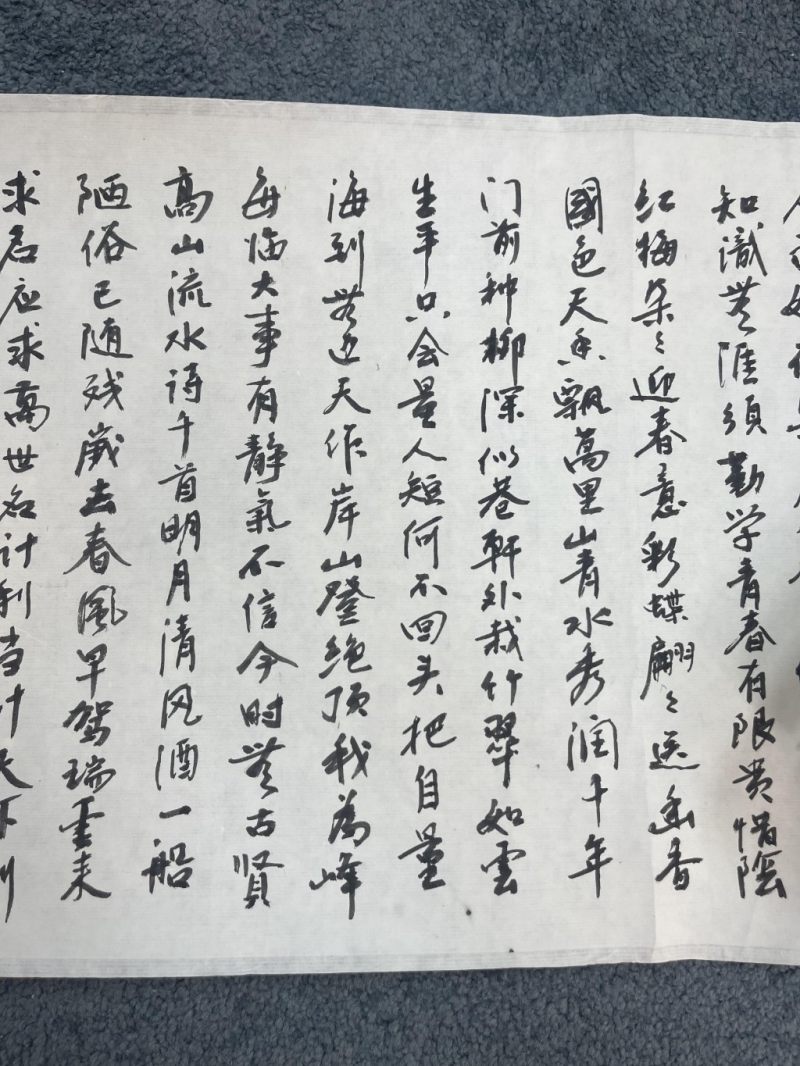 知識无涯須勤学青春有限贵惜陰
红梅朵々迎春意彩蝶翩々送幽香
國色天香飘萬里山青水秀润千年
门前种柳深似巷軒外栽竹翠如雲
生平只会量人短何不回头把自量
海到无边天作岸山登绝顶我為峰
每临大事有静氣不信今时无古贤
高山流水诗千首明月清风酒一船
陋俗已随残歲去春風早驾瑞雲来
求名应求萬世名计利当计天下利